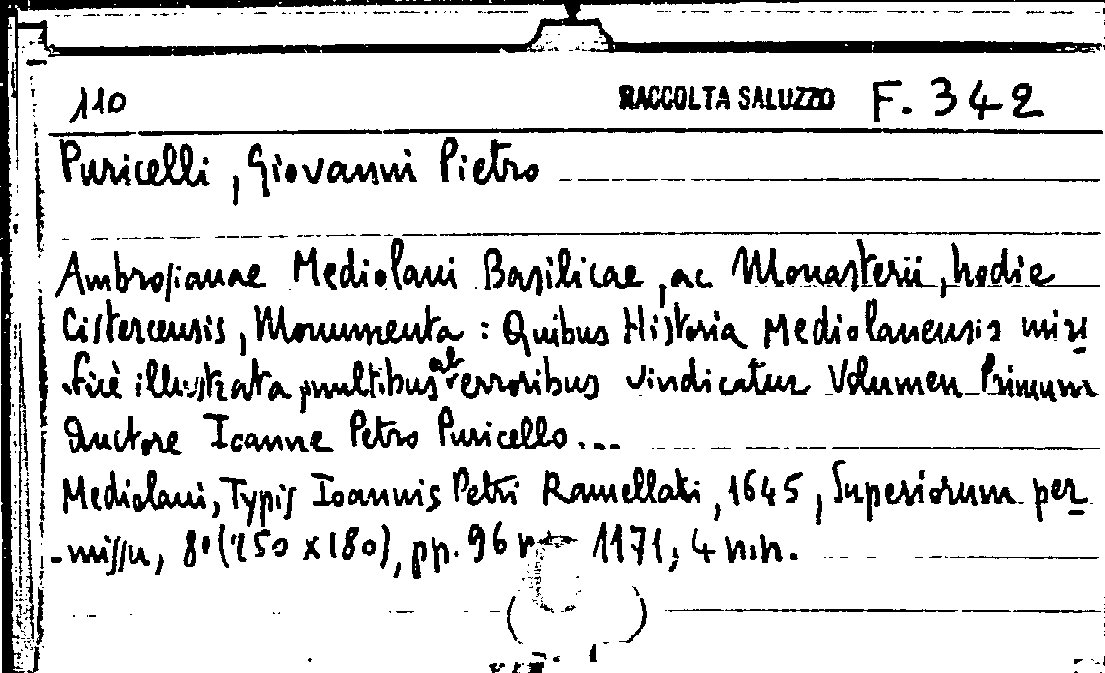 110 RACCOLTA SALUZZO F. 342
Puricelli, Giovanni Pietro
Ambrosianae Mediolani Basilicae, ac Monasterii, hodie
Cistercensis, Monumenta: Quibus Historia Mediolanensis miri
-ficè illustrata, multibus ab erroribus vindicatur Volumen Primum
Auctore Ioanne Petro Puricello...
Mediolani, Typis Ioannis Petri Ramellati, 1645, Superiorum per
-missu, 8° (250 x 180), pp. 96 1171, 4 n.n.